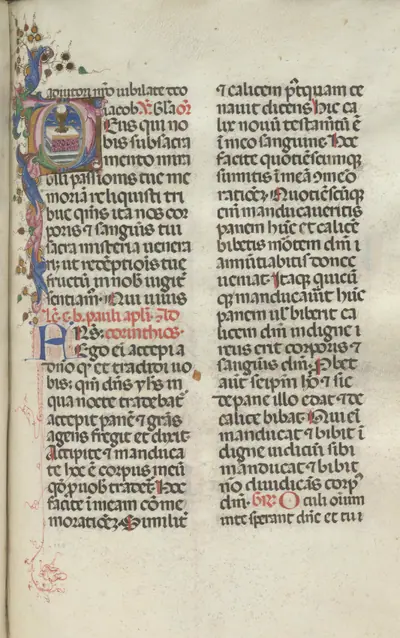 adiutori nr̄o iubilate deo
iacob. V̄. Gl̄a. Or̄
Deus qui no
bis sub sacra
mento mira
bili passionis tue me
moriā reliquisti tri
bue q̄m̄s ita nos cor
poris et sanguīs tui
sacra misteria uenera
ri: ut redēptiōis tue
fructū in nob̄ iugit̄
sentiam̄. Qui uiuis
Lc̄. ep̄. b. pauli apl̄i. ad
FRS̄: corinthios.
Ego ei accepi a
dn̄o qd̄ et tradidi uo
bis: qm̄ dn̄s yh̄s in
qua nocte tradebat̄
accepit panē et grās
agens fregit et dixit.
Accipite et manduca
te hoc ē corpus meū
qd̄ p̄ uob̄ tradet̄. Hoc
facite ī meam cōme
moratiōēz. Similit̄
et calicem p̄tquam ce
nauit dicens. Hic ca
lix nouū testam̄tū ē
ī meo sanguine. Hoc
facite quotiēscumq̄
sumitis ī meā 9mēō
ratiōēz. Quotiēscūq̄
eim̄ manducaueritis
panem hūc et calicē
bibetis mōtem dn̄i
annūtiabitis donec
ueniat. Itaq̄ quicū
q̄ manducauīt hūc
panem ul̄ biberit ca
licem dn̄i indigne
reus erit corporis et
sanguīs dn̄i. Probet
aut̄ seip̄m hō et sic
de pane illo edat et de
calice bibat. Qui ei
manducat et bibit ī
digne iudiciū sibi
manducat et bibit
nō diiudicās corp̄
dn̄i. Gr̄. Oculi oīum
in te sperant dn̄e et tu i